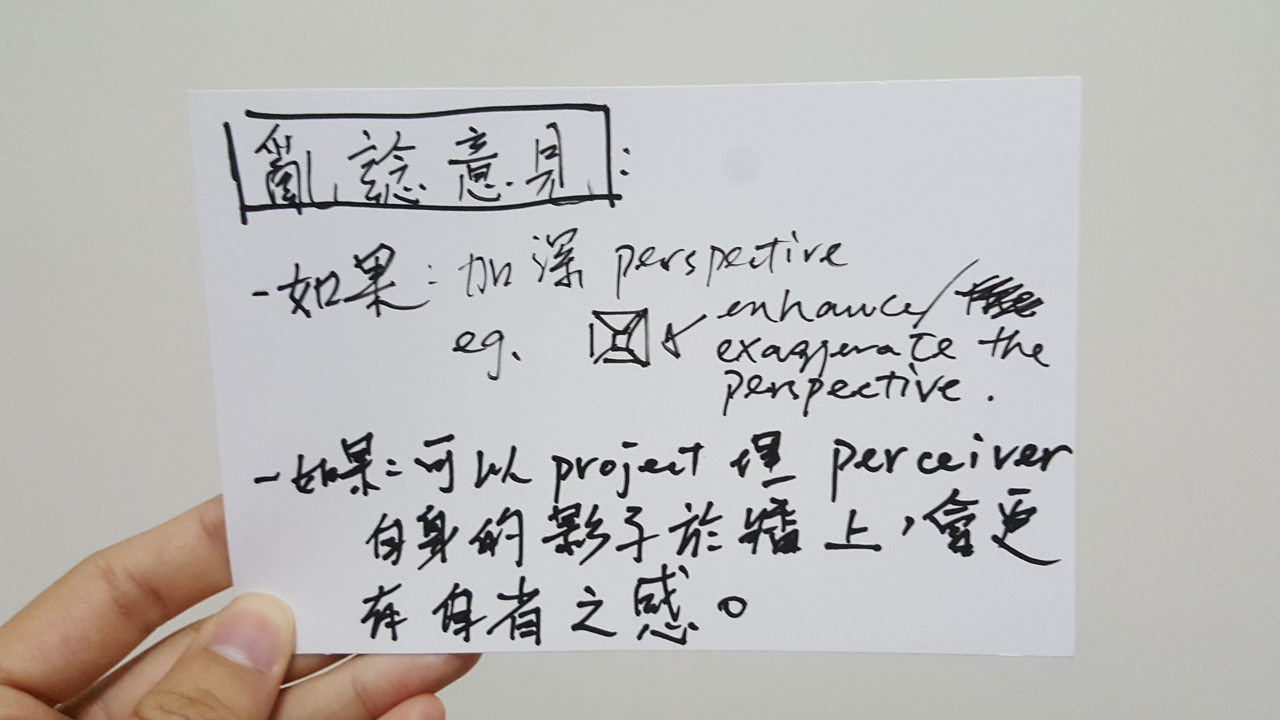 亂諗意見:
-如果:加深 perspective
eg. enhance/
exaggerate the
perspective.
-如果:可以 project 埋 perceiver
自身的影子於牆上,會更
有自省之感。